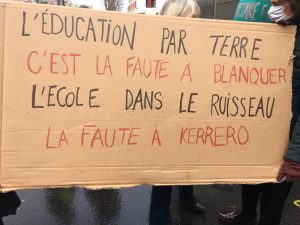 L'ÉDUCATION PAR TERRE
C'EST LA FAUTE À BLANQUER
L'ECOLE DANS LE RUISSEAU
LA FAUTE À KERRERO